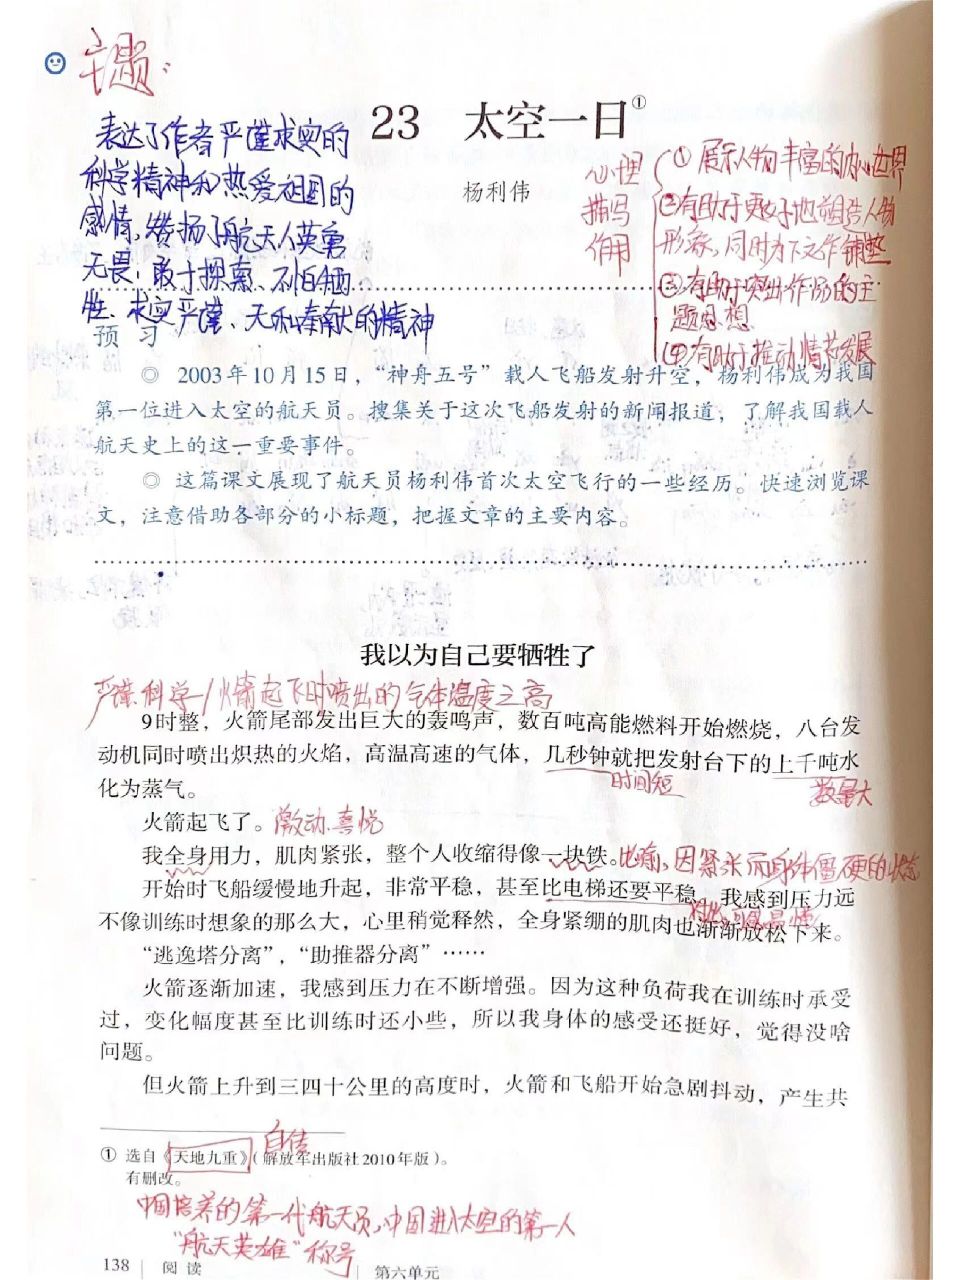 主题：
23 太空一日①
杨利伟
表达了作者严谨求实的
科学精神和热爱祖国的
感情，赞扬了航天人英勇
无畏：敢于探索、不怕牺
牲、求实严谨、无私奉献的精神
心理
描写
作用
①展示人物丰富的内心世界
②有助于更好地塑造人物
形象，同时为下文作铺垫
③有助于突出作品的主
题思想
④有助于推动情节发展
预 习
◎ 2003年10月15日，“神舟五号”载人飞船发射升空，杨利伟成为我国
第一位进入太空的航天员。搜集关于这次飞船发射的新闻报道，了解我国载人
航天史上的这一重要事件。
◎ 这篇课文展现了航天员杨利伟首次太空飞行的一些经历。快速浏览课
文，注意借助各部分的小标题，把握文章的主要内容。
我以为自己要牺牲了
严谨科学/火箭起飞时喷出的气体温度之高
9时整，火箭尾部发出巨大的轰鸣声，数百吨高能燃料开始燃烧，八台发
动机同时喷出炽热的火焰，高温高速的气体，几秒钟就把发射台下的上千吨水
时间短
数量大
化为蒸气。
火箭起飞了。激动、喜悦
我全身用力，肌肉紧张，整个人收缩得像一块铁。比喻，因紧张而身体僵硬的状态
开始时飞船缓慢地升起，非常平稳，甚至比电梯还要平稳。我感到压力远
对比
不像训练时想象的那么大，心里稍觉释然，全身紧绷的肌肉也渐渐放松下来。
“逃逸塔分离”，“助推器分离”……
火箭逐渐加速，我感到压力在不断增强。因为这种负荷我在训练时承受
过，变化幅度甚至比训练时还小些，所以我身体的感受还挺好，觉得没啥
问题。
但火箭上升到三四十公里的高度时，火箭和飞船开始急剧抖动，产生共
自传
① 选自《天地九重》（解放军出版社2010年版）。
有删改。
中国培养的第一代航天员，中国进入太空的第一人
“航天英雄”称号
138 阅 读 第六单元